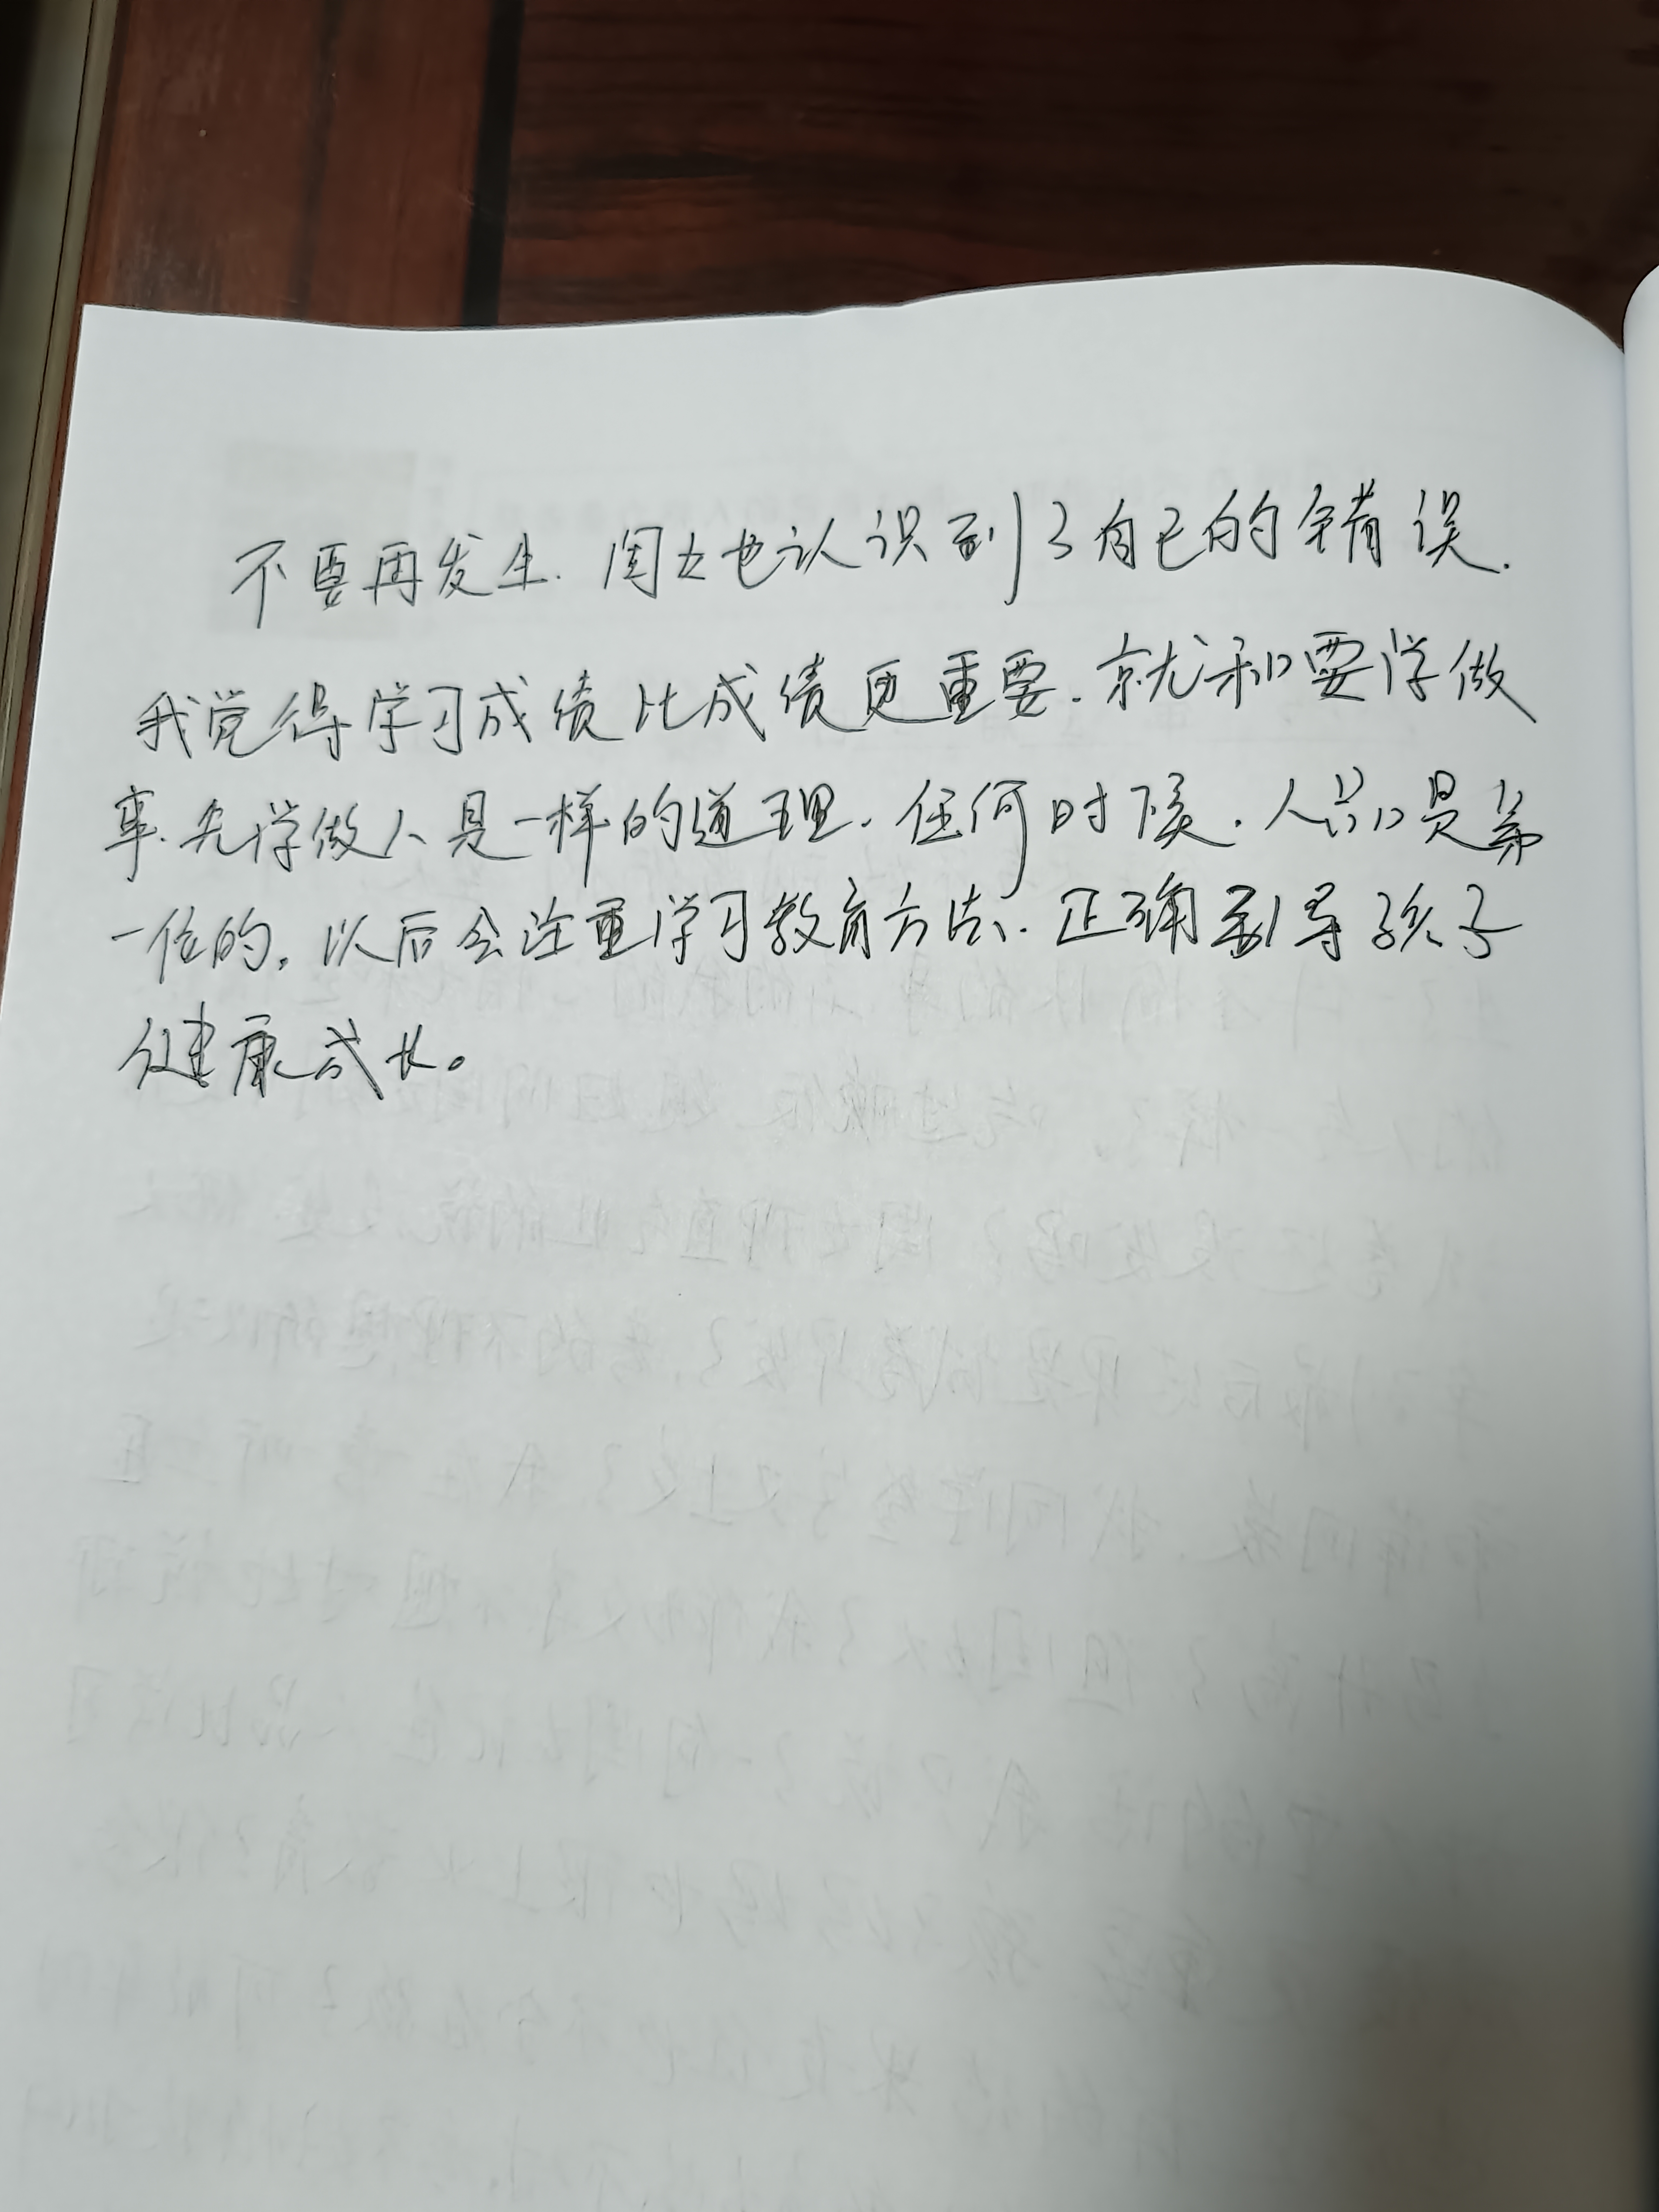 不要再发生.闺女也认识到了自己的错误.
我觉得学习成绩比成绩更重要.就和要学做
事.先学做人是一样的道理.任何时候.人品是第
一位的,以后会注重学习教育方法.正确引导孩子
健康成长。